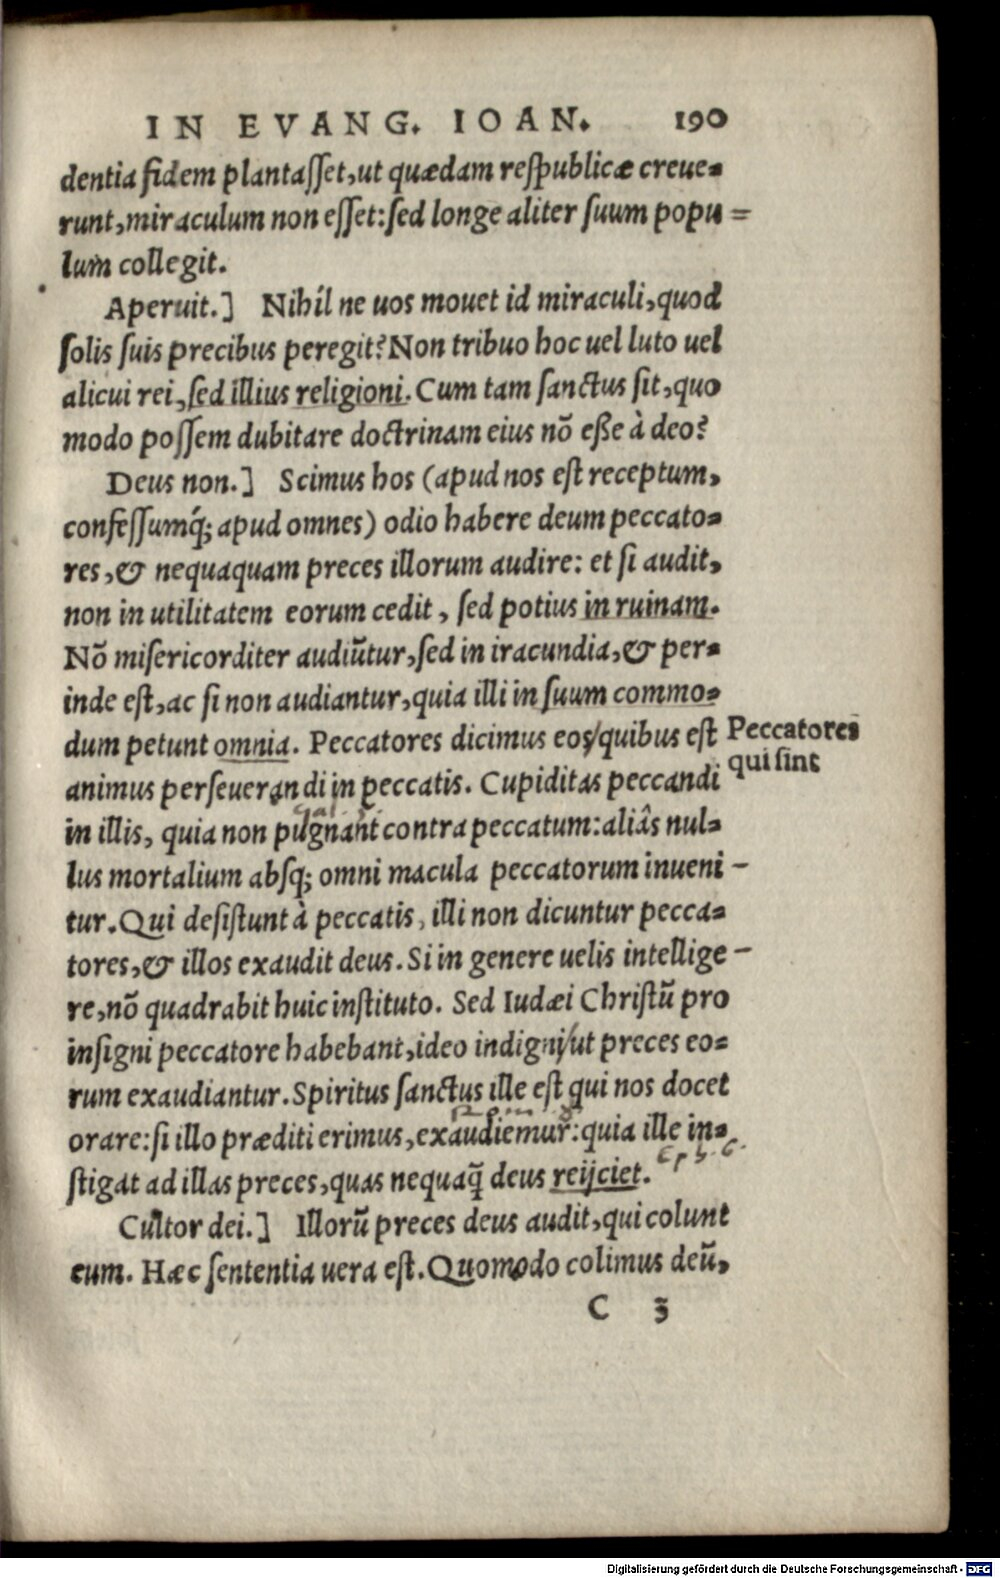 IN EVANG. IOAN. 190
dentia fidem plantasset, ut quædam respublicæ creue=
runt, miraculum non esset: sed longe aliter suum popu=
lum collegit.
Aperuit.] Nihil ne uos mouet id miraculi, quod
solis suis precibus peregit? Non tribuo hoc uel luto uel
alicui rei, sed illius religioni. Cum tam sanctus sit, quo
modo possem dubitare doctrinam eius nõ eße à deo?
Deus non.] Scimus hos (apud nos est receptum,
confessumq́; apud omnes) odio habere deum peccato=
res, & nequaquam preces illorum audire: et si audit,
non in utilitatem eorum cedit, sed potius in ruinam.
Nõ misericorditer audiũtur, sed in iracundia, & per=
inde est, ac si non audiantur, quia illi in suum commo=
dum petunt omnia. Peccatores dicimus eos, quibus est
Peccatores
qui sint
animus perseuerandi in peccatis. Cupiditas peccandi
in illis, quia non pugnant contra peccatum: aliâs nul=
lus mortalium absq; omni macula peccatorum inueni-
tur. Qui desistunt à peccatis, illi non dicuntur pecca=
tores, & illos exaudit deus. Si in genere uelis intellige-
re, nõ quadrabit huic instituto. Sed Iudæi Christũ pro
insigni peccatore habebant, ideo indigni, ut preces eo=
rum exaudiantur. Spiritus sanctus ille est qui nos docet
orare: si illo præditi erimus, exaudiemur: quia ille in=
Rom 8
Eph. 6.
stigat ad illas preces, quas nequaq̃ deus reijciet.
Cultor dei.] Illorũ preces deus audit, qui colunt
eum. Hæc sententia uera est. Quomodo colimus deũ,
C 3
Digitalisierung gefördert durch die Deutsche Forschungsgemeinschaft - DFG